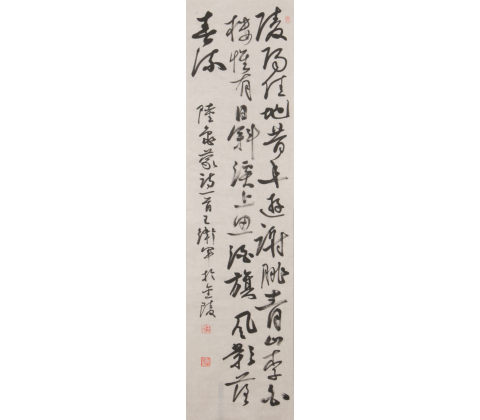 陵陽佳地昔年遊謝朓青山李白
樓惟有日斜溪上思酒旗風影落
春流
陸龜蒙詩一首王衛軍於金陵